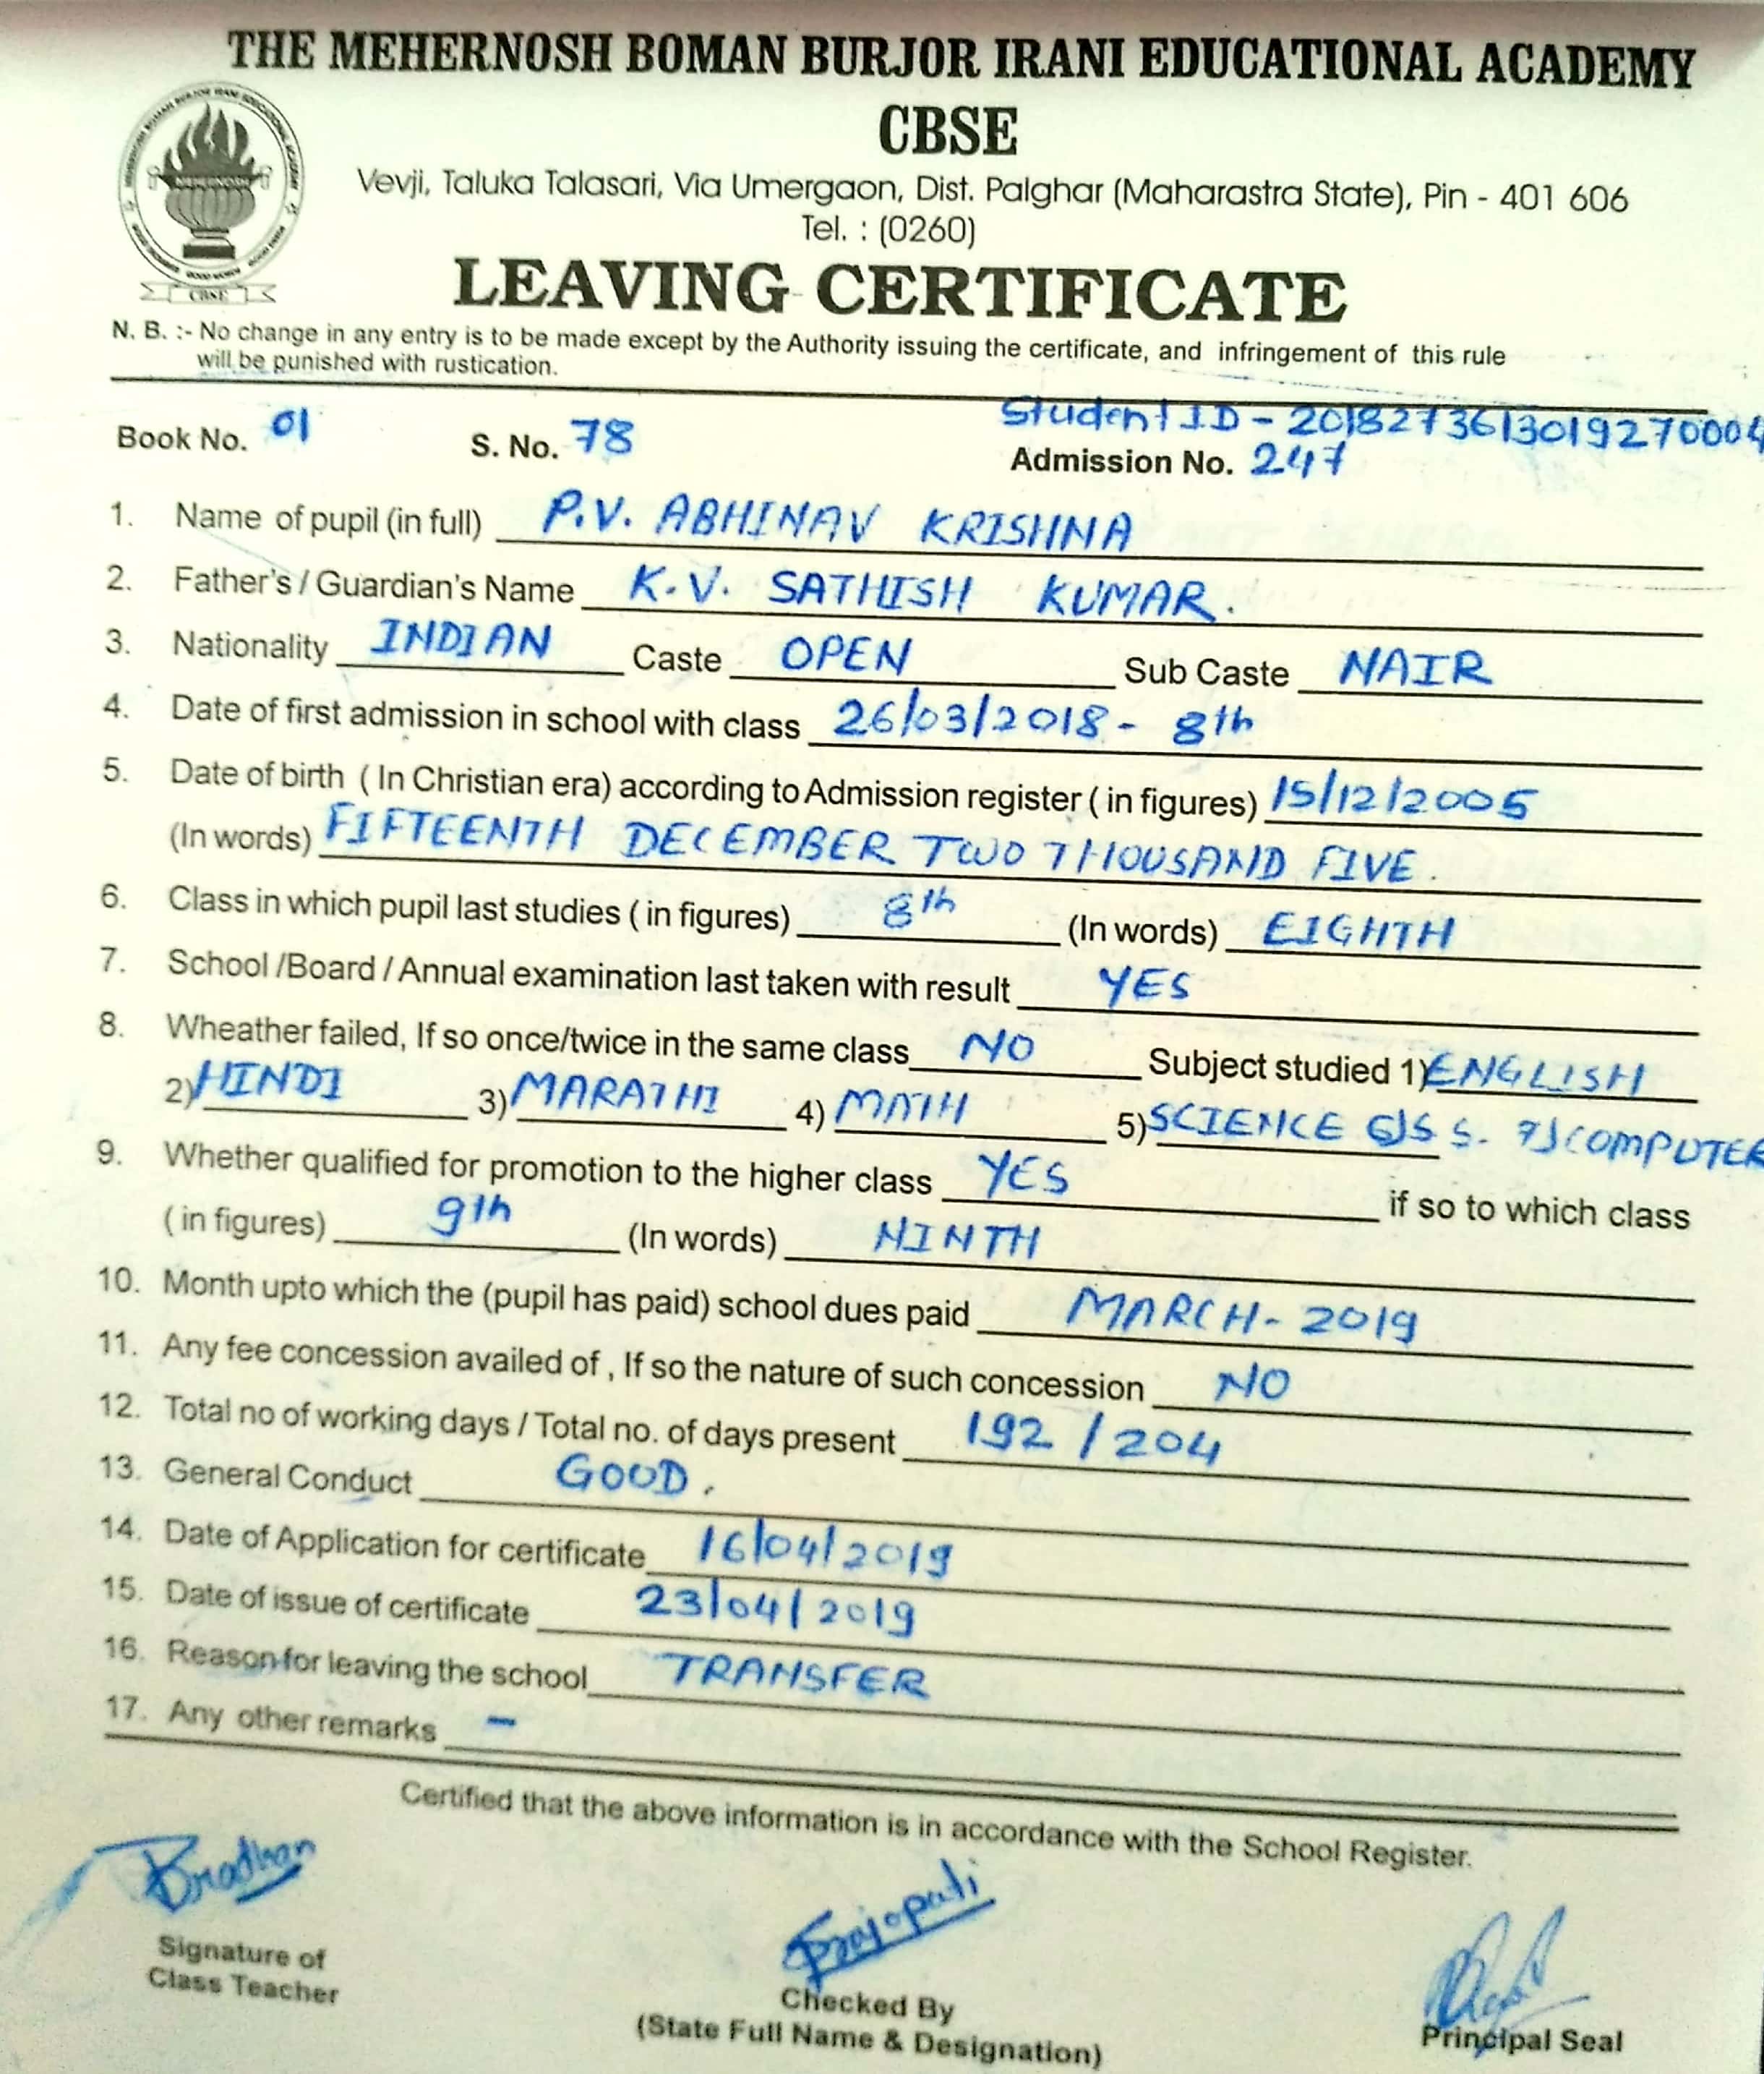 THE MEHERNOSH BOMAN BURJOR IRANI EDUCATIONAL ACADEMY
CBSE
Vevji, Taluka Talasari, Via Umergaon, Dist. Palghar (Maharastra State), Pin - 401 606
Tel. : (0260)
CBSE
LEAVING CERTIFICATE
N. B. :- No change in any entry is to be made except by the Authority issuing the certificate, and infringement of this rule
will be punished with rustication.
Student ID - 2018273613019270004
Book No. 01 S. No. 78 Admission No. 247
1. Name of pupil (in full) P.V. ABHINAV KRISHNA
2. Father's / Guardian's Name K.V. SATHISH KUMAR.
3. Nationality INDIAN Caste OPEN Sub Caste NAIR
4. Date of first admission in school with class 26/03/2018 - 8th
5. Date of birth ( In Christian era) according to Admission register ( in figures) 15/12/2005
(In words) FIFTEENTH DECEMBER TWO THOUSAND FIVE.
6. Class in which pupil last studies ( in figures) 8th (In words) EIGHTH
7. School /Board / Annual examination last taken with result YES
8. Wheather failed, If so once/twice in the same class NO Subject studied 1) ENGLISH
2) HINDI 3) MARATHI 4) MATH 5) SCIENCE 6) S.S. 7) COMPUTER
9. Whether qualified for promotion to the higher class YES if so to which class
( in figures) 9th (In words) NINTH
10. Month upto which the (pupil has paid) school dues paid MARCH - 2019
11. Any fee concession availed of , If so the nature of such concession NO
12. Total no of working days / Total no. of days present 192 / 204
13. General Conduct GOOD.
14. Date of Application for certificate 16/04/2019
15. Date of issue of certificate 23/04/2019
16. Reason for leaving the school TRANSFER
17. Any other remarks -
Certified that the above information is in accordance with the School Register.
Pradhan
Prajapati
Signature of
Class Teacher
Checked By
(State Full Name & Designation)
Principal Seal